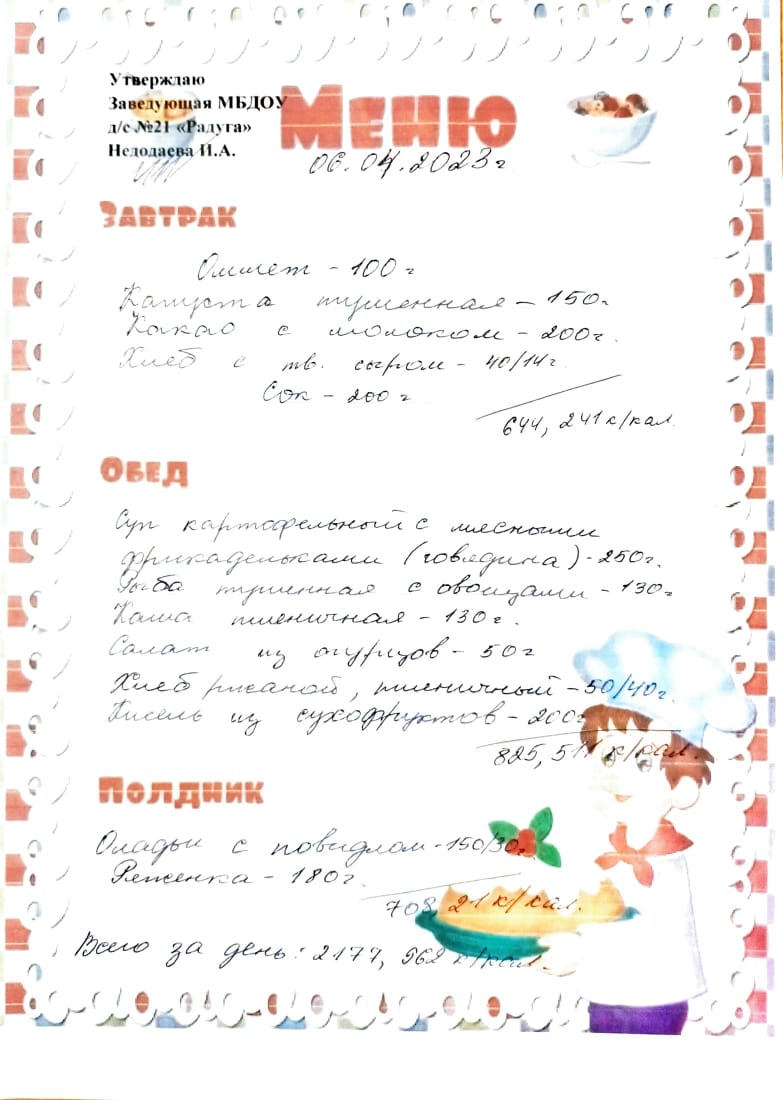 Утверждаю
Заведующая МБДОУ
д/с №21 «Радуга»
Недодаева И.А.
МЕНЮ
06.04.2023г
ЗАВТРАК
Омлет - 100 г
Капуста тушенная - 150г
Какао с молоком - 200г.
Хлеб с тв. сыром - 40/14г.
Сок - 200 г
644, 241 к/кал.
ОБЕД
Суп картофельный с мясными
фрикадельками (говядина) - 250г.
Рыба тушенная с овощами - 130г
Каша пшеничная - 130г.
Салат из огурцов - 50г
Хлеб ржаной, пшеничный - 50/40г.
Кисель из сухофруктов - 200г
825, 511 к/кал.
ПОЛДНИК
Оладьи с повидлом - 150/30г
Ряженка - 180г.
708, 21 к/кал.
Всего за день: 2177, 962 к/кал.